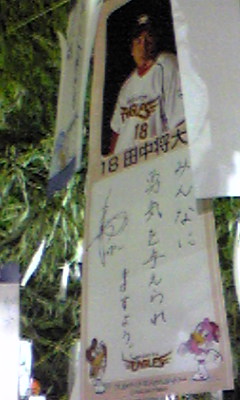 EAGLES
18
18 田中将大
みんなに
勇気を与えられ
ますよう。
EAGLES